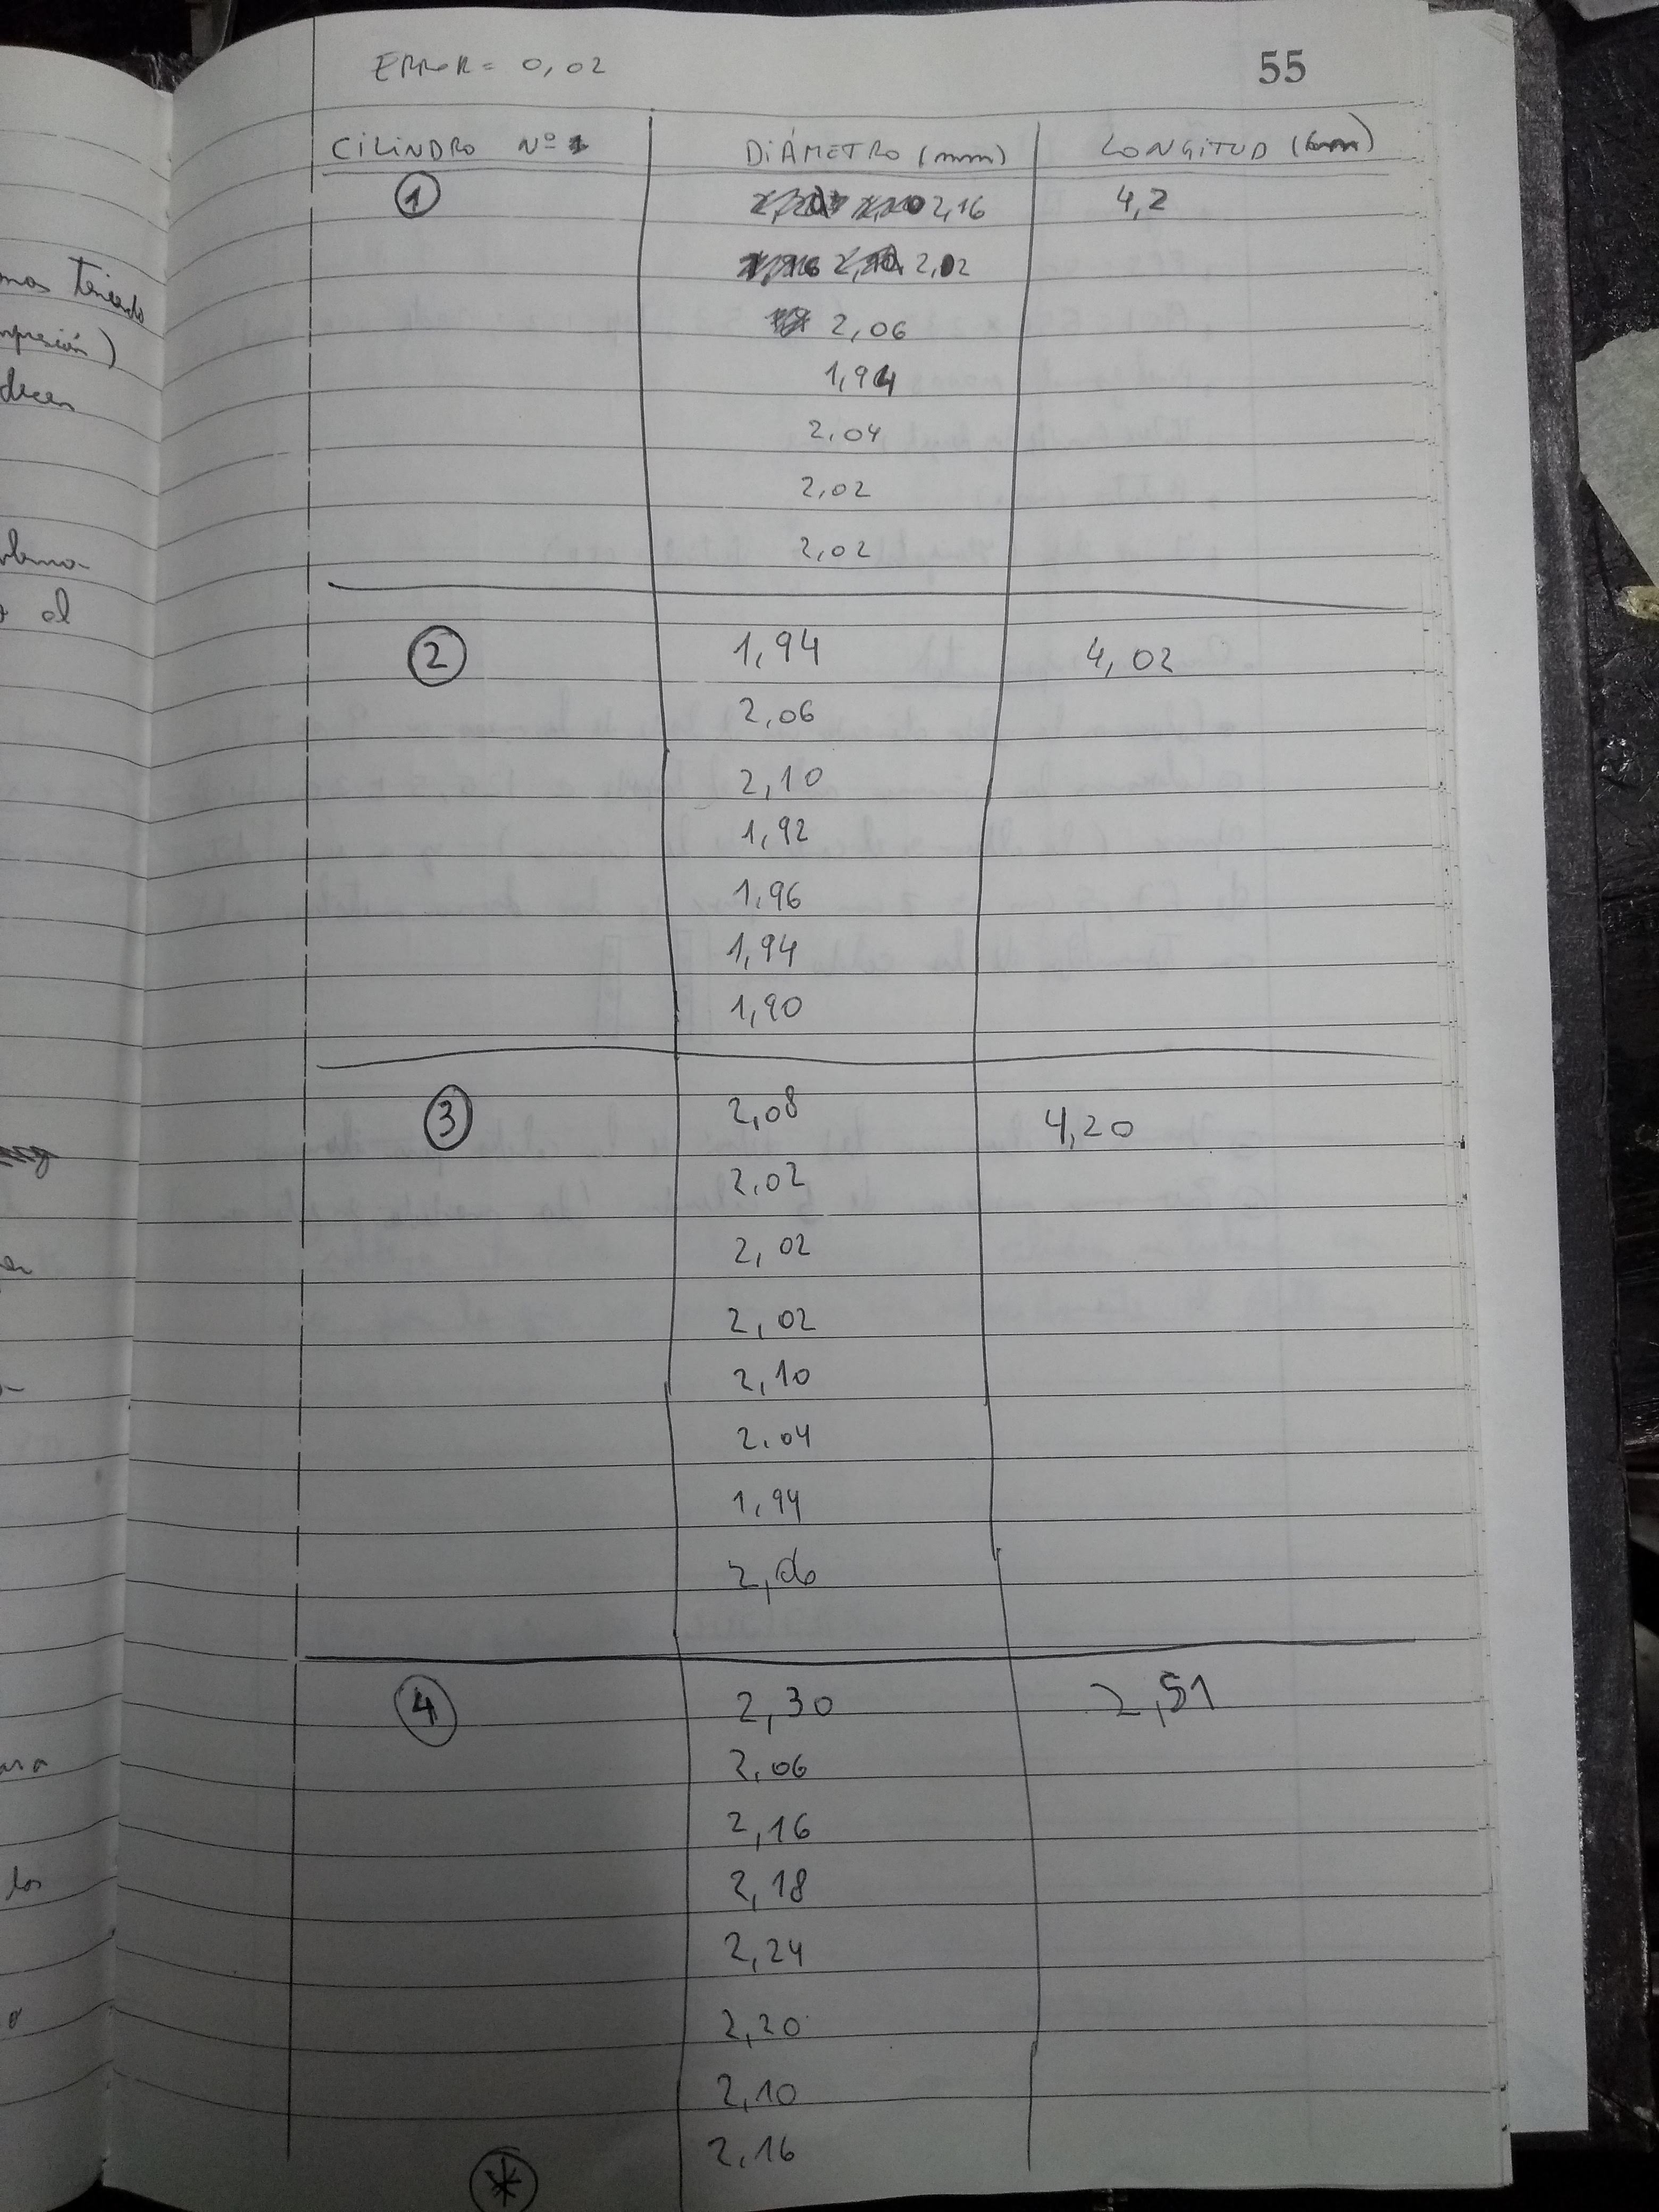 ERROR = 0,02
55
CILINDRO Nº DIÁMETRO (mm) LONGITUD (cm)
1 2,16 4,2
2,02
2,06
1,94
2,04
2,02
2,02
2 1,94 4,02
2,06
2,10
1,92
1,96
1,94
1,90
3 2,08 4,20
2,02
2,02
2,02
2,10
2,04
1,94
2,06
4 2,30 2,51
2,06
2,16
2,18
2,24
2,20
2,10
2,16
*
mos Tenendo
mpresión)
decen
o el
er
ara
los
o